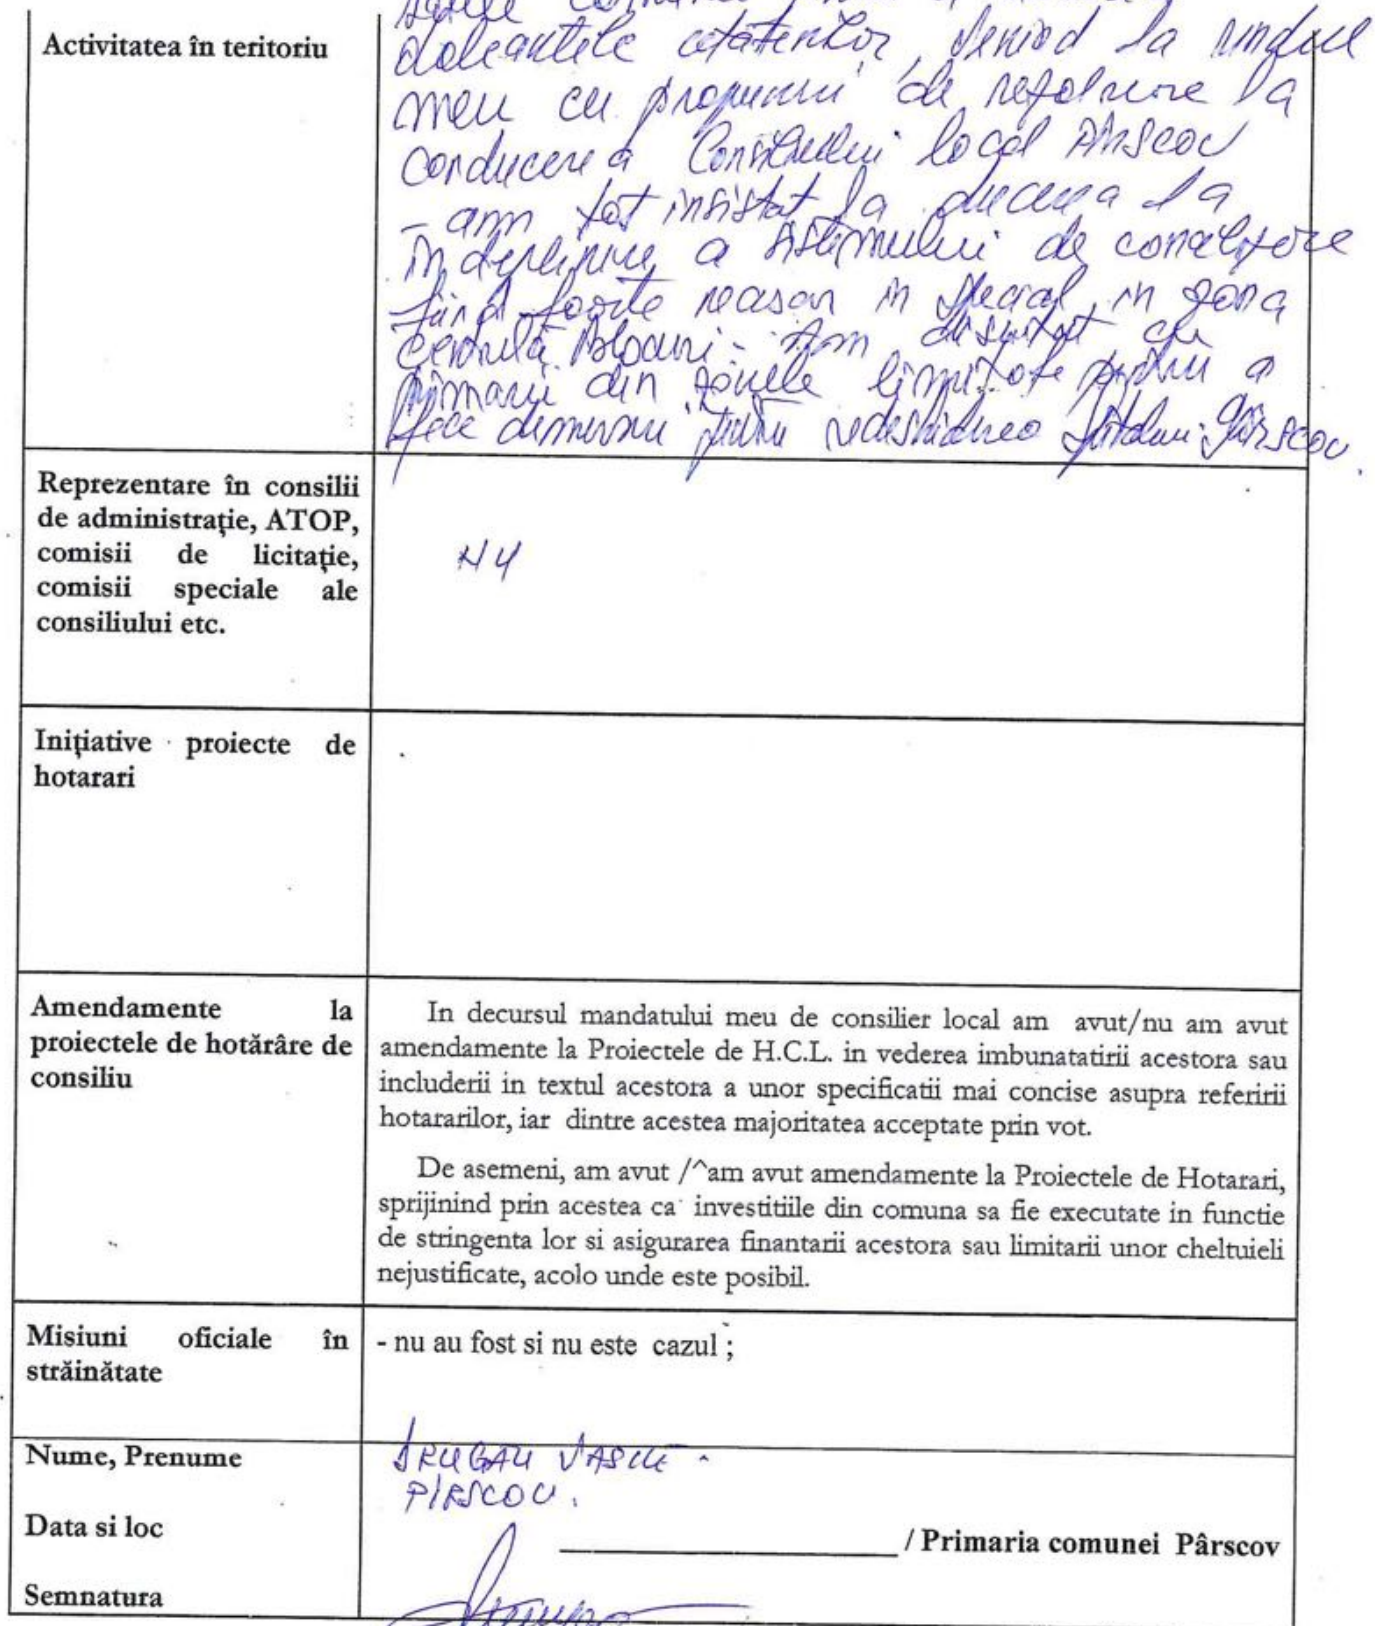 Activitatea în teritoriu
doleantele cetatenilor, venind la rindul
meu cu propuneri de rezolvare la
conducerea Consiliului local Pîrscov
- am tot insistat la ducerea la
îndeplinire a sistemului de canalizare
fiind foarte necesar in special in zona
centrală blocuri. Am discutat cu
primarii din zonele limitrofe pentru a
face demersuri pentru redeschiderea Pîrscov.
Reprezentare în consilii
de administrație, ATOP,
comisii de licitație,
comisii speciale ale
consiliului etc.
NU
Inițiative proiecte de
hotarari
Amendamente la
proiectele de hotărâre de
consiliu
In decursul mandatului meu de consilier local am avut/nu am avut
amendamente la Proiectele de H.C.L. in vederea imbunatatirii acestora sau
includerii in textul acestora a unor specificatii mai concise asupra referirii
hotararilor, iar dintre acestea majoritatea acceptate prin vot.
De asemeni, am avut /^am avut amendamente la Proiectele de Hotarari,
sprijinind prin acestea ca investitiile din comuna sa fie executate in functie
de stringenta lor si asigurarea finantarii acestora sau limitarii unor cheltuieli
nejustificate, acolo unde este posibil.
Misiuni oficiale în
străinătate
- nu au fost si nu este cazul ;
Nume, Prenume
VASILE
PIRSCOV.
Data si loc
/ Primaria comunei Pârscov
Semnatura